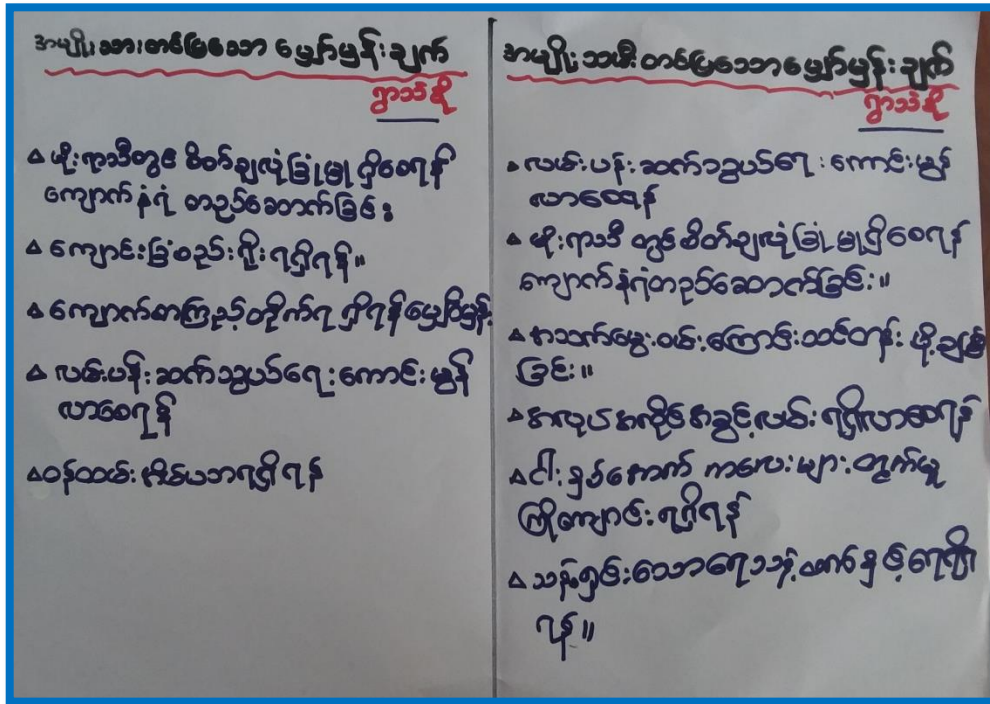 အမျိုးသားတင်ပြသော မျှော်မှန်းချက်
ရွာသစ်စု
မိုးရာသီတွင် စိတ်ချလုံခြုံမှု ရှိစေရန်
ကျောက်နံရံ တည်ဆောက်ခြင်း
ကျောင်းခြံစည်းရိုးရရှိရန်။
ကျောက်စာကြည့်တိုက်ရရှိရန်မျှော်မှန်း
လမ်းပန်းဆက်သွယ်ရေးကောင်းမွန်
လာစေရန်
ဝန်ထမ်းအိမ်ယာရရှိရန်
အမျိုးသမီးတင်ပြသောမျှော်မှန်းချက်
ရွာသစ်စု
လမ်းပန်းဆက်သွယ်ရေးကောင်းမွန်
လာစေရန်
မိုးရာသီတွင်စိတ်ချလုံခြုံမှုရှိစေရန်
ကျောက်နံရံတည်ဆောက်ခြင်း။
အသက်မွေးဝမ်းကြောင်းသင်တန်း ပို့ချ
ခြင်း။
အလုပ်အကိုင်အခွင့်လမ်းရရှိလာစေရန်
ငါးနှစ်အောက် ကလေးများတွက်မူ
ကြိုကျောင်းရရှိရန်
သန့်ရှင်းသောရေသန့်စက်နှင့်ရေရရှိ
ရန်။